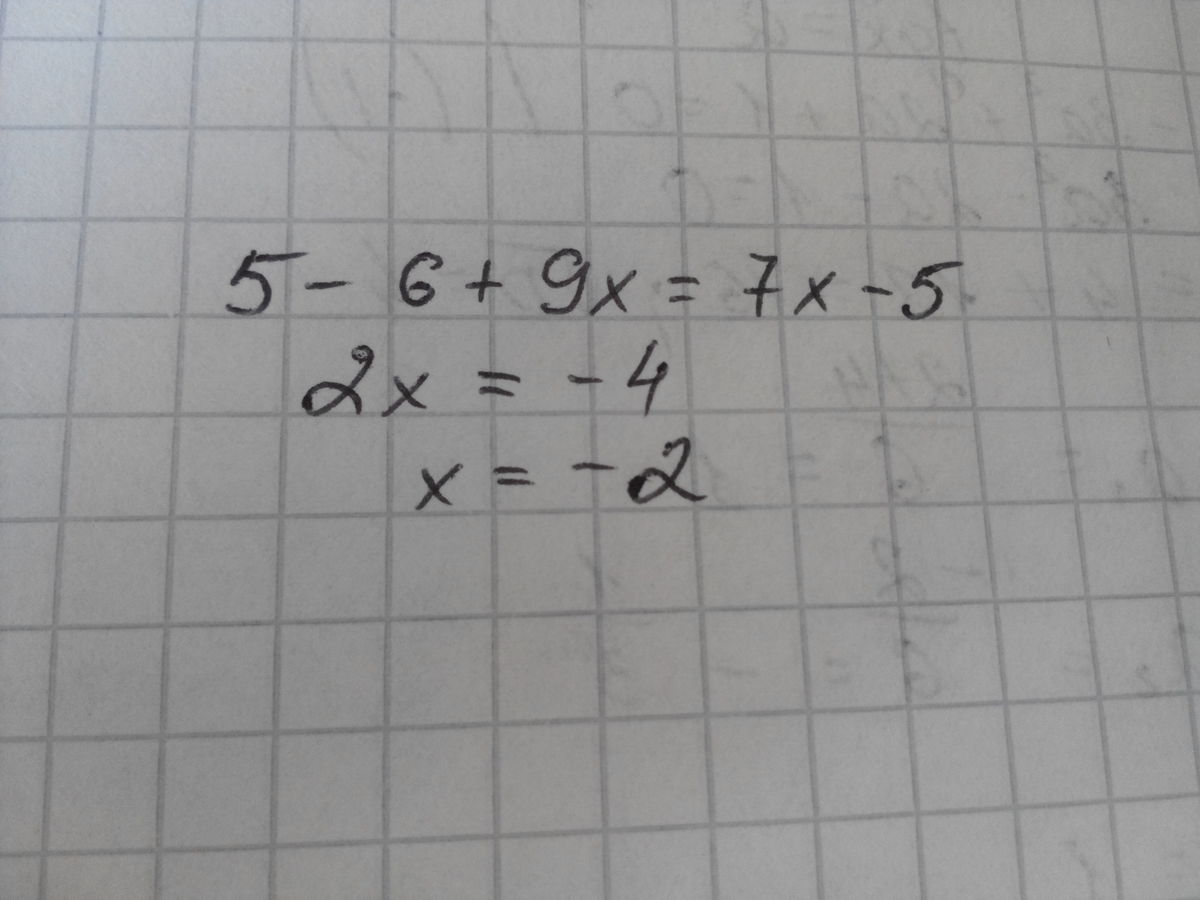 5 - 6 + 9x = 7x - 5
2x = -4
x = -2